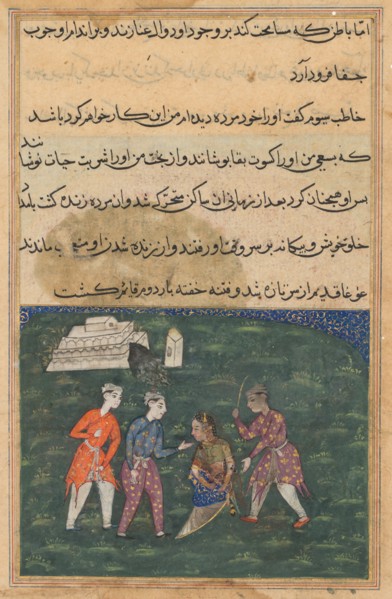 اما باطن که مسامحت کند بر وجود او دوال عنا زند و بر اندام او چوب
جفا فرود آرد
خاطب سوم گفت او را خود مرده دیده ام من این کار خواهم کرد باشد
که بسعی من او را کسوت بقا پوشانند و از بخت من او را شربت حیات نوشانند
پس او همچنان کرد بعد از زمانی آن ساکن متحرک شد و آن مرده زنده گشت
خلق خویش و بیگانه بر سر وقت او رفتند و از زنده شدن او متعجب ماندند
غوغا قدیم از سر تازه شد و فتنه خفته بار دوم قایم گشت